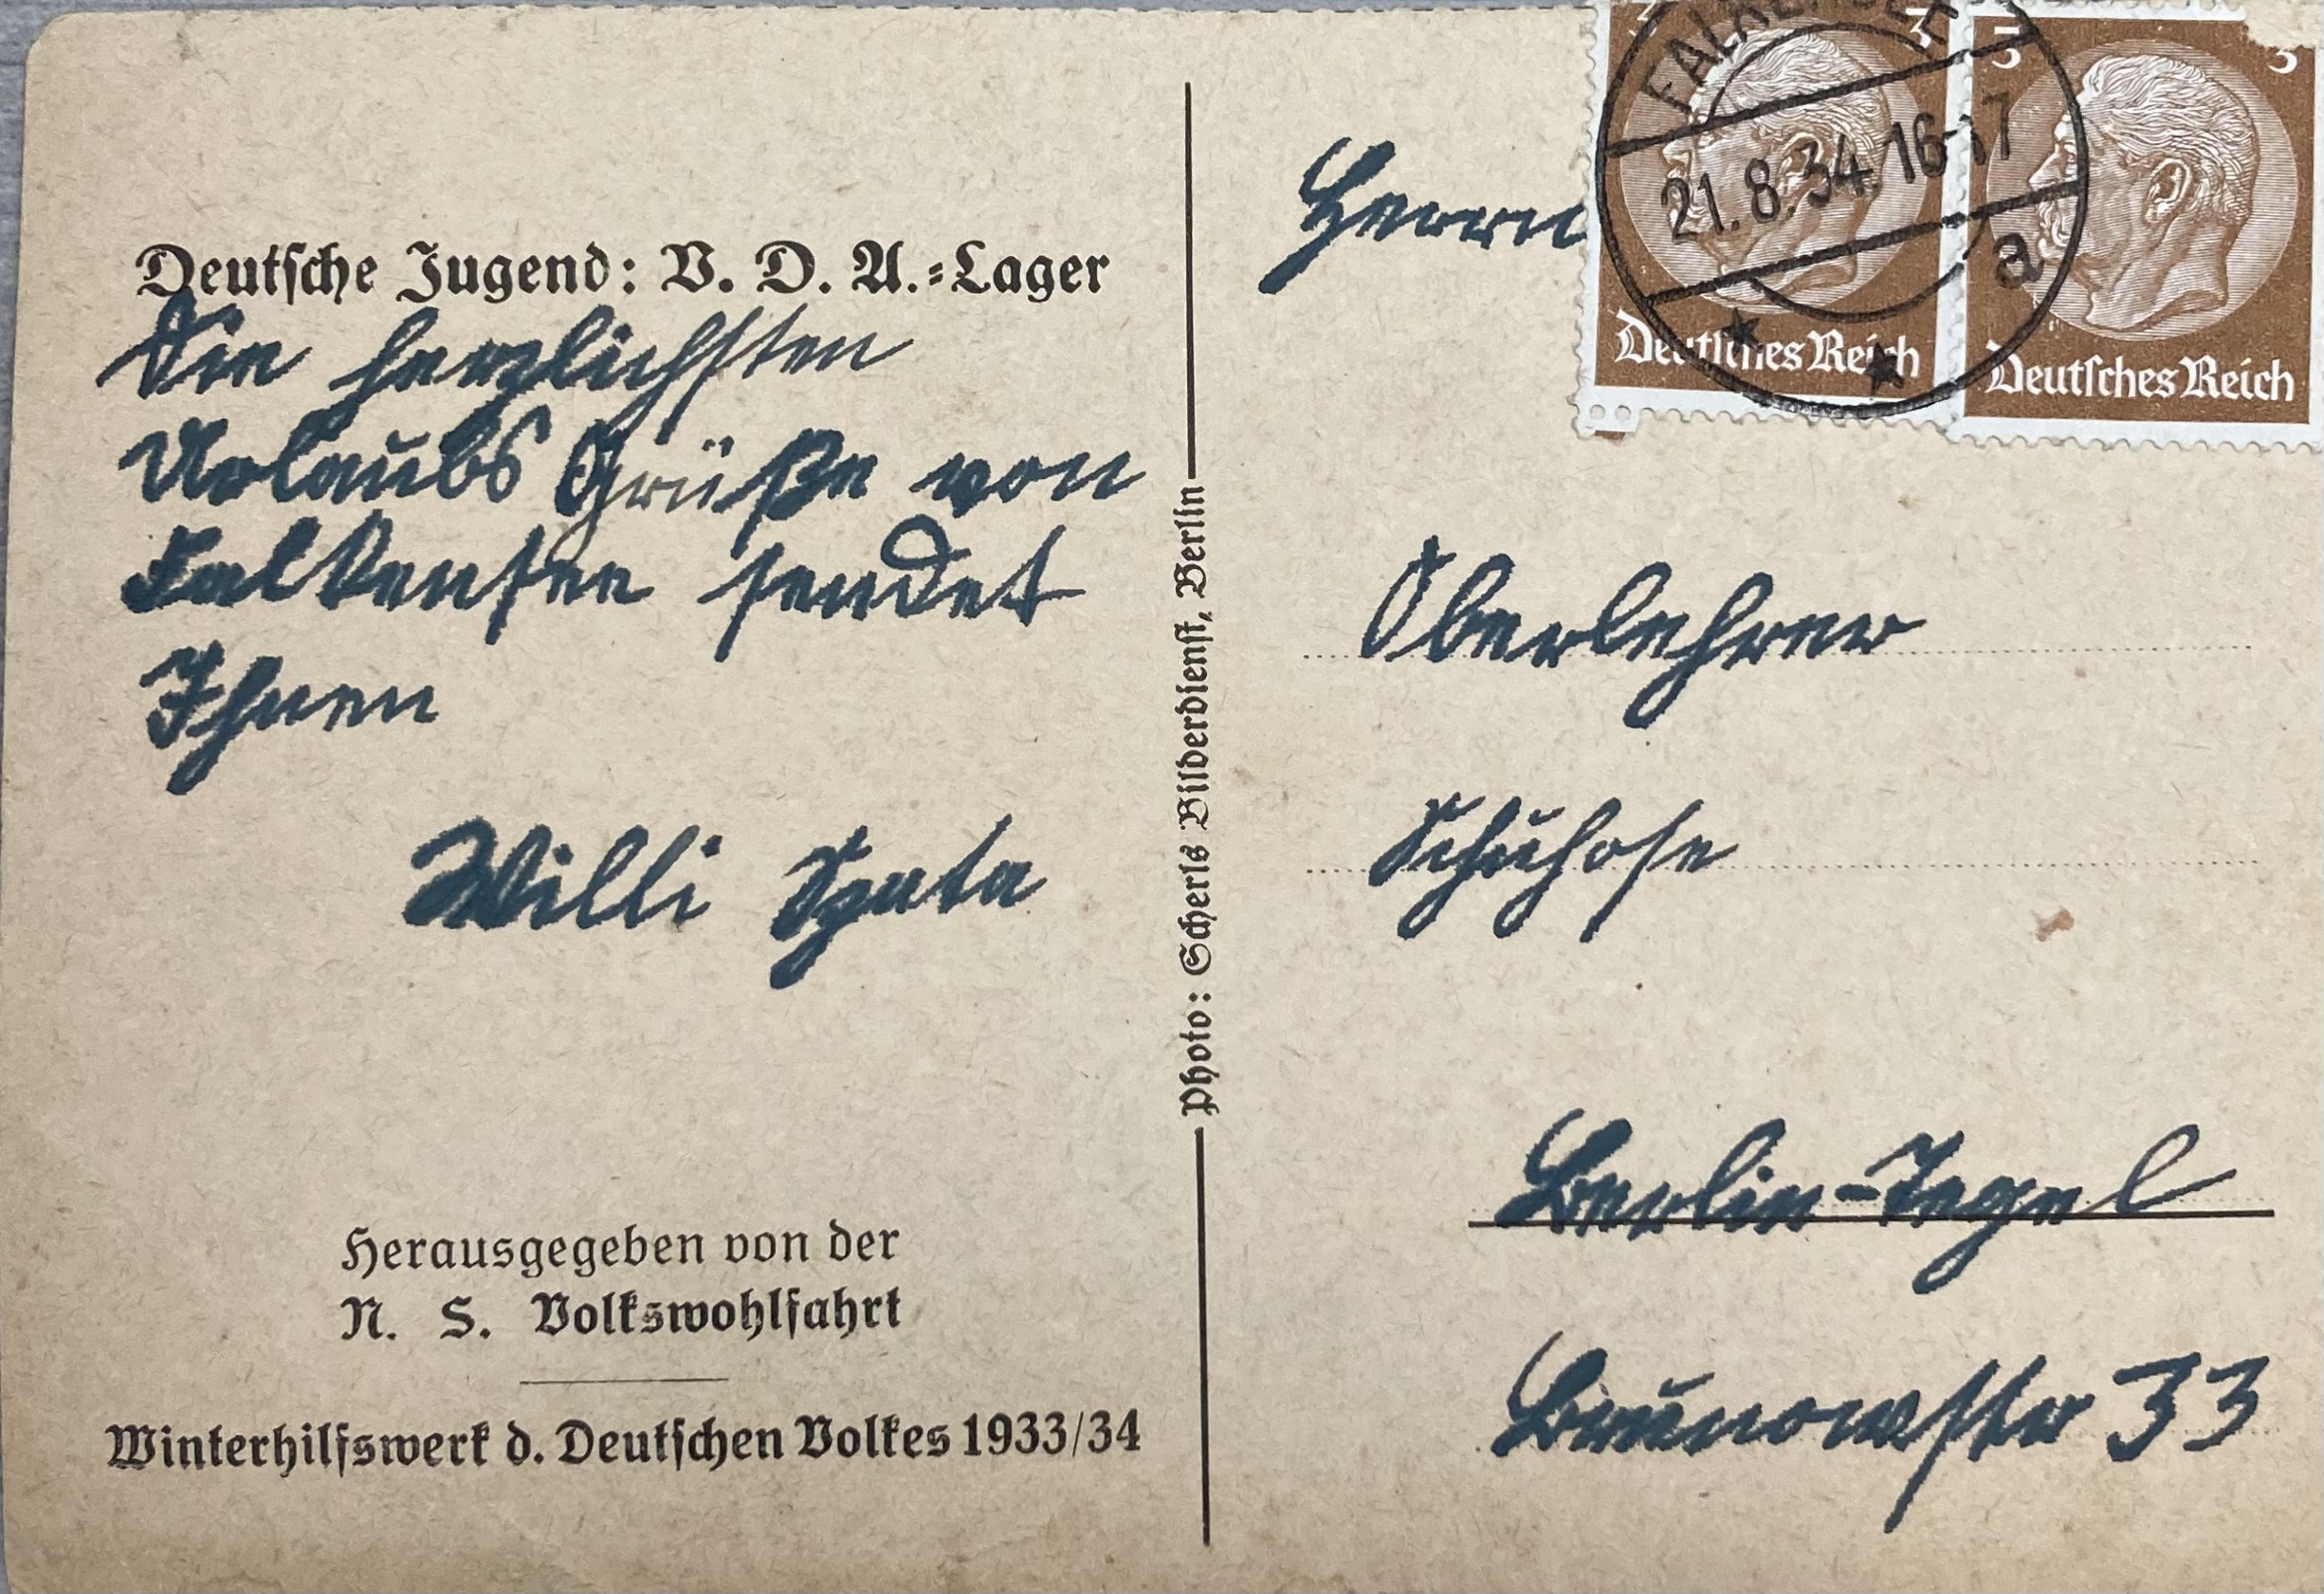 Deutsche Jugend: V. D. A.-Lager
Die herzlichsten
Urlaubs Grüße von
Falkensee sendet
Ihnen
Willi
Herausgegeben von der
N. S. Volkswohlfahrt
Winterhilfswerk d. Deutschen Volkes 1933/34
Photo: Scherls Bilderdienst, Berlin
3 3
21.8.34.16-17
a
Deutsches Reich
Deutsches Reich
Herrn
Oberlehrer
Schuhose
Berlin-Tegel
Brunowstr 33